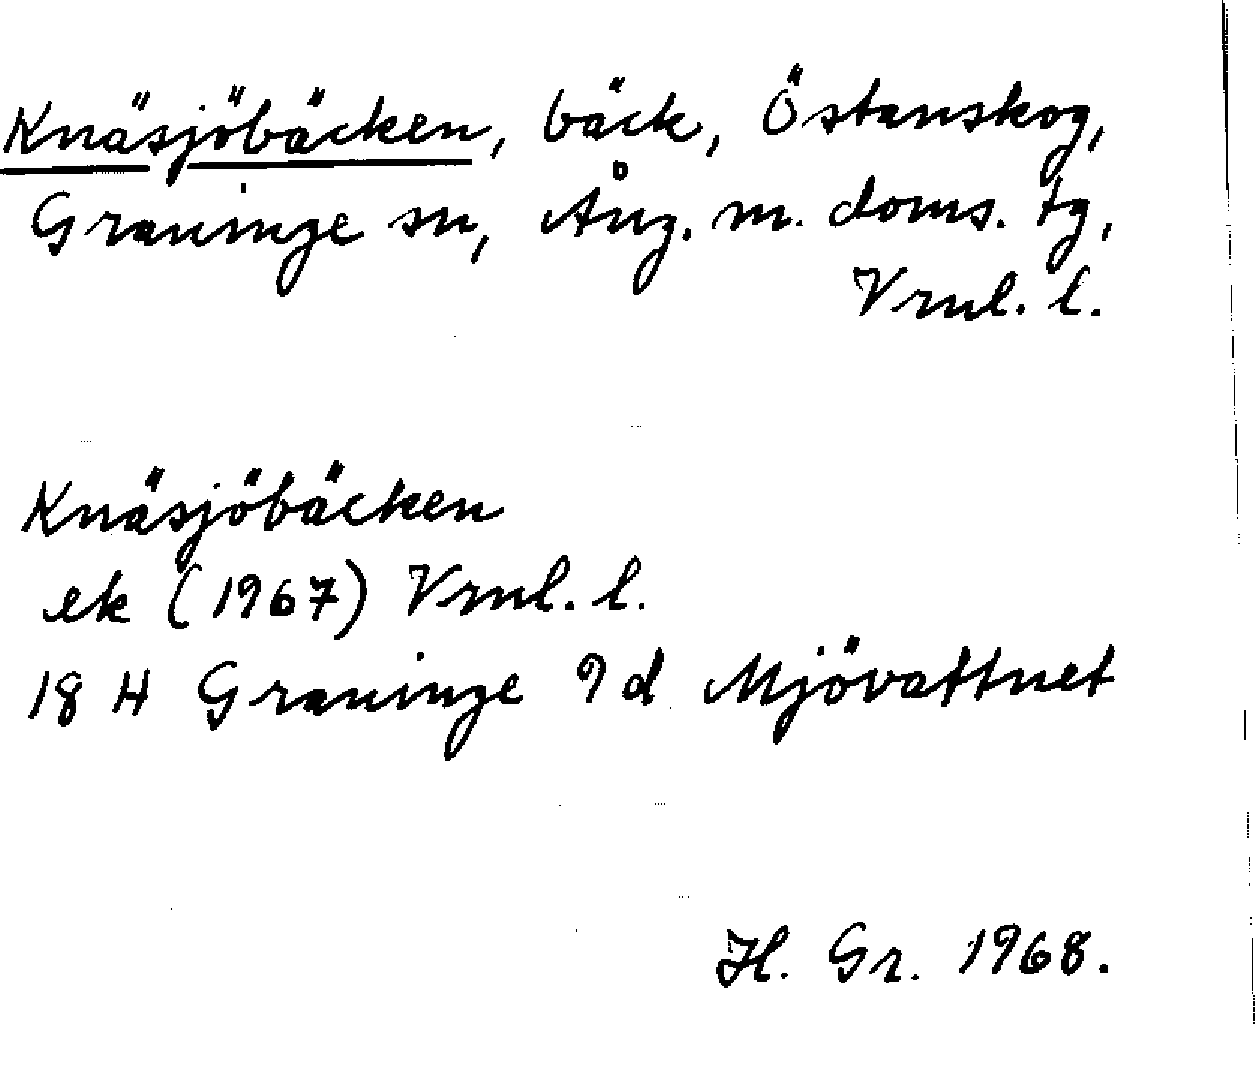 Knäsjöbäcken, bäck, Östanskog,
Graninge sn, Ång. m. doms. tg,
Vrnl. l.
Knäsjöbäcken
ek (1967) Vrnl. l.
18 H Graninge 9d Mjövattnet
H. Gr. 1968.